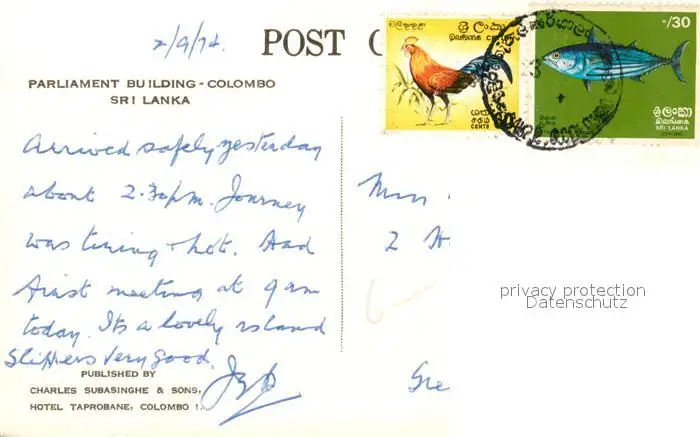 2/9/74.
POST C
PARLIAMENT BUILDING - COLOMBO
SRI LANKA
Arrived safely yesterday
about 2.30pm. Journey
was tiring & hot. Had
first meeting at 9 am
today. Its a lovely island
Slippers very good.
PUBLISHED BY
CHARLES SUBASINGHE & SONS,
HOTEL TAPROBANE, COLOMBO 1.
ශ්‍රී ලංකා
இலங்கை
ශත
சதம்
CENTS
-/30
ශ්‍රී ලංකා
இலங்கை
SRI LANKA
(CEYLON)
2 H
Gre
privacy protection
Datenschutz